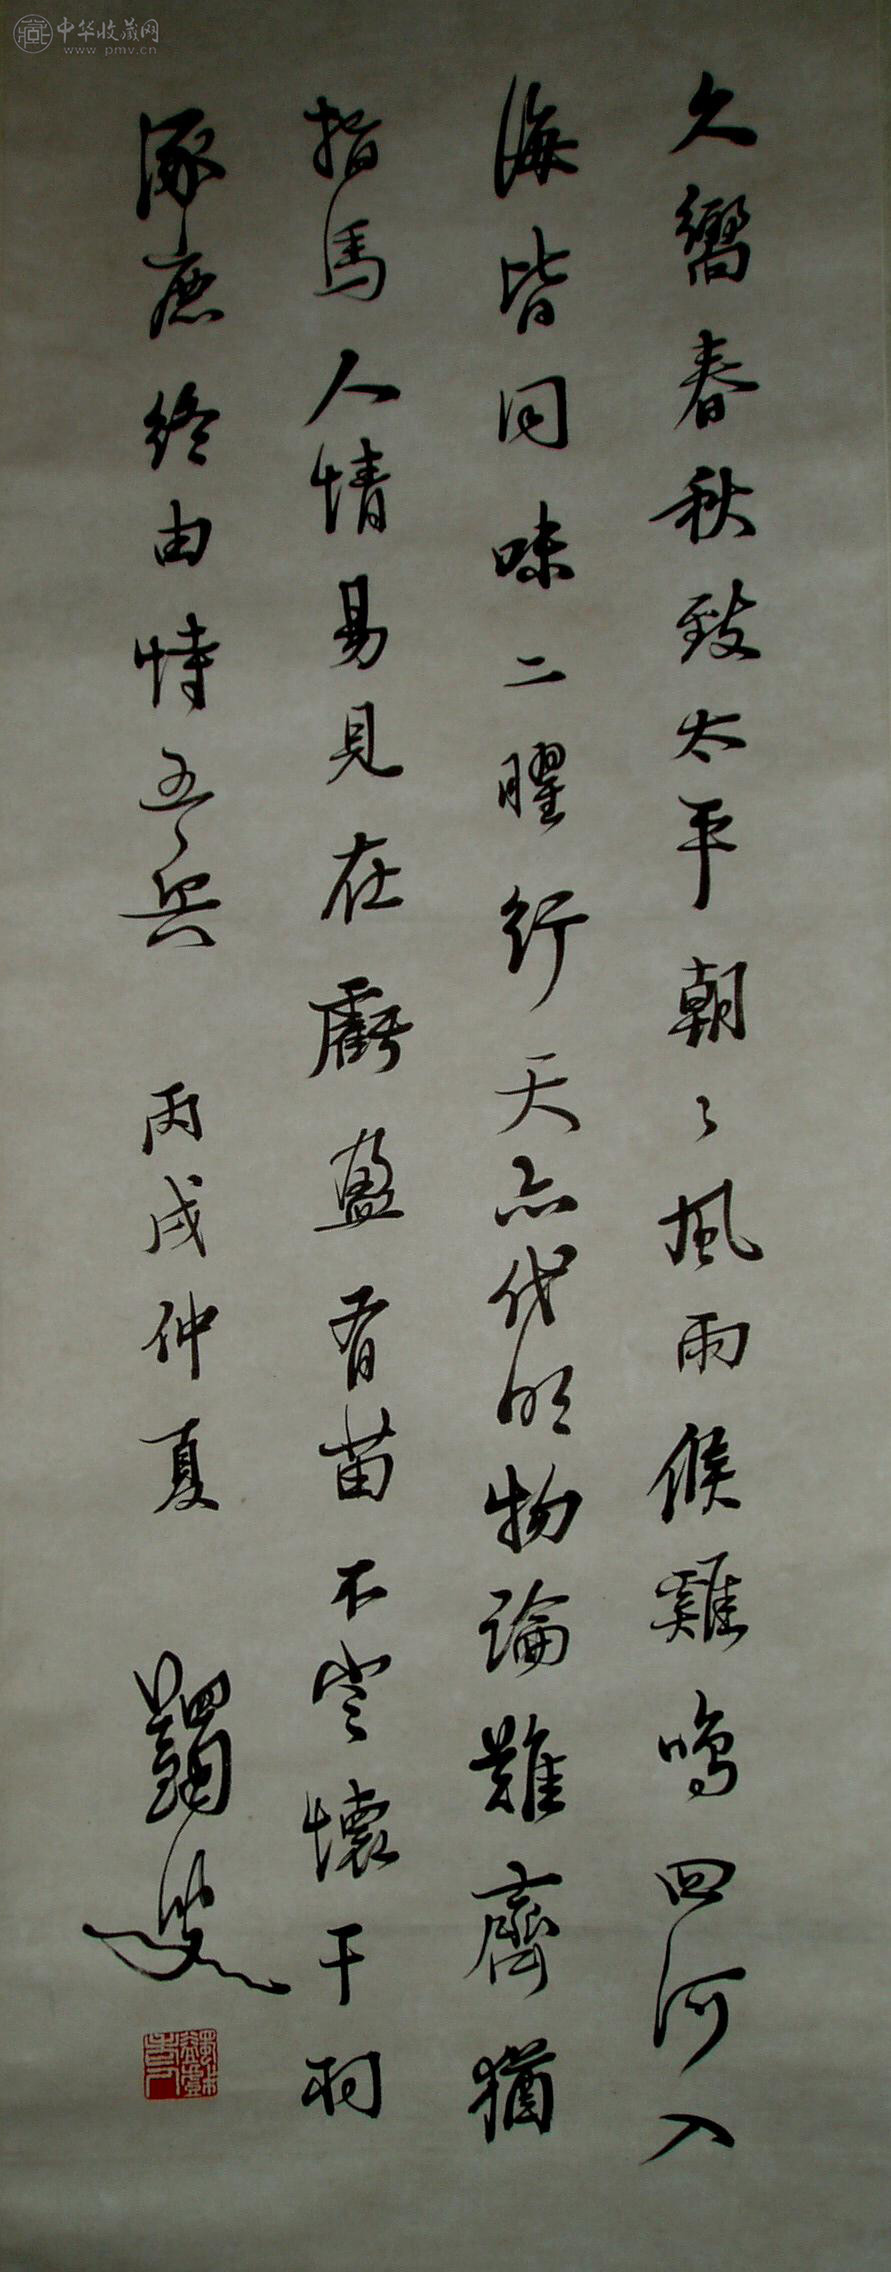 中华收藏网
www.pmv.cn
久嚮春秋致太平朝々風雨候雞鳴四河入
海皆同味二曜行天亦代明物論難齊猶
指馬人情易見在虧盈有苗不定懷干羽
涿鹿終由恃五兵
丙戌仲夏
蠲叟